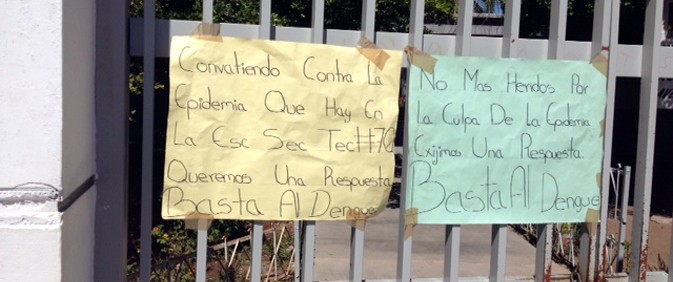 Convatiendo Contra La
Epidemia Que Hay En
La Esc Sec Tec#70
Queremos Una Respuesta
Basta Al Dengue
No Mas Heridos Por
La Culpa De La Epidemia
Exijimos Una Respuesta
Basta Al Dengue